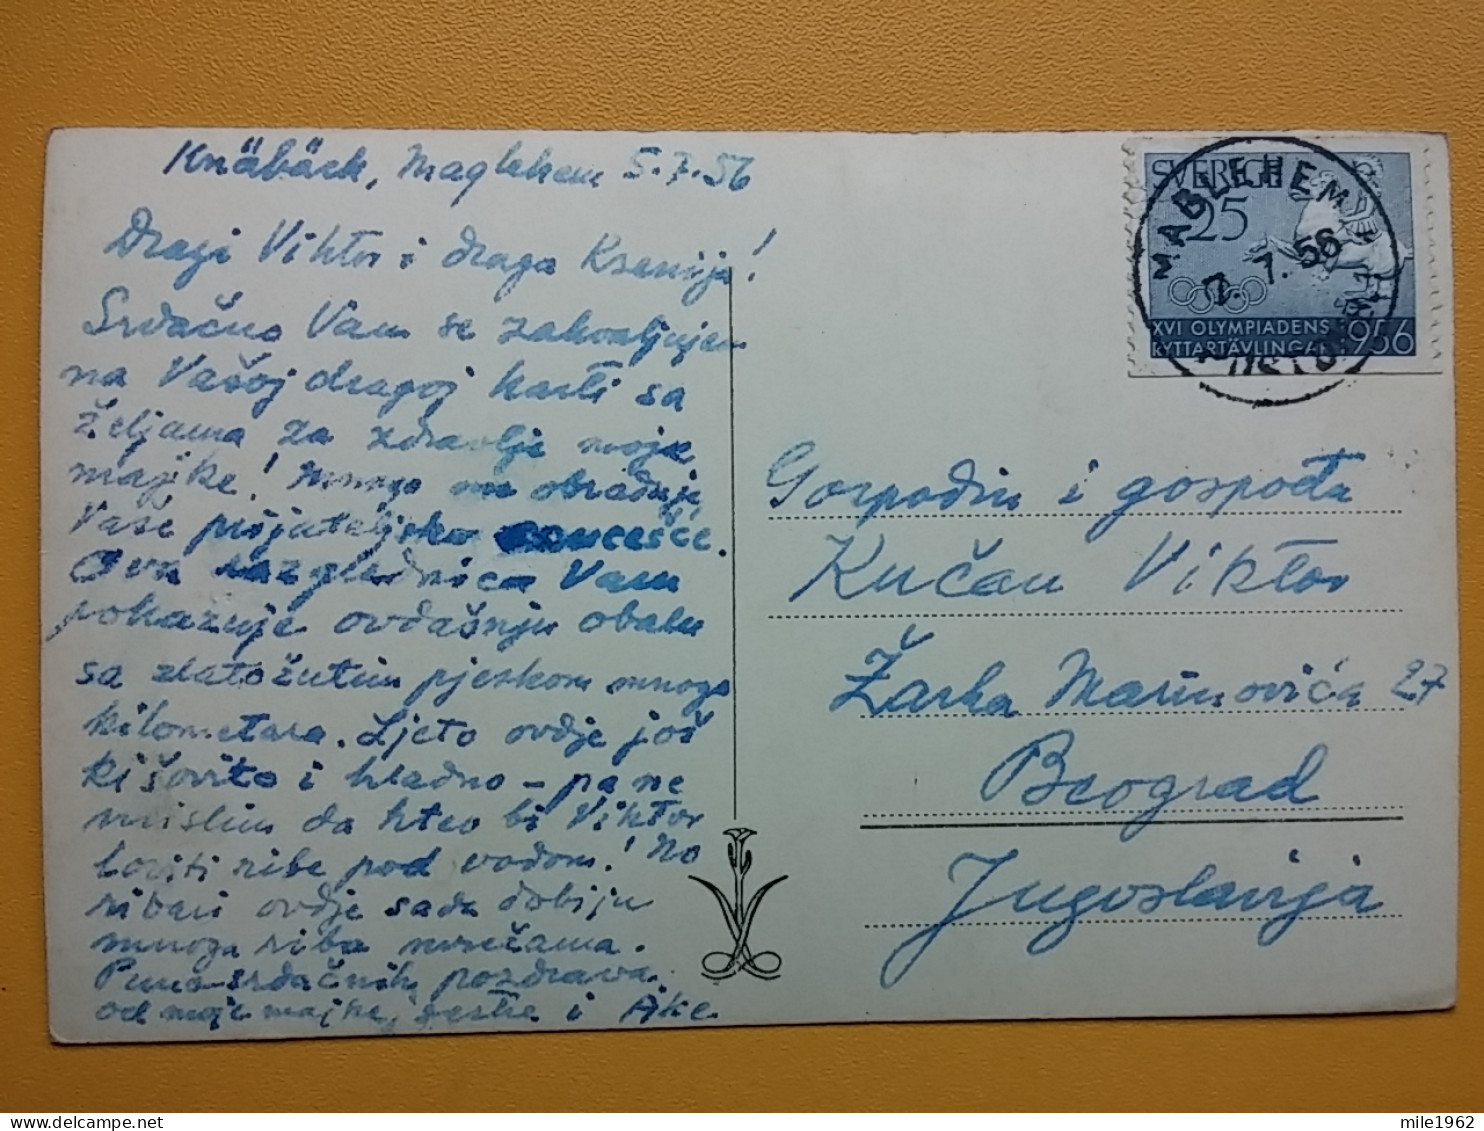 Knäbäck, Maglehem 5.7.56
Dragi Viktor i draga Ksenija!
Srdačno Vam se zahvaljujem
na Vašoj dragoj karti sa
željama za zdravlje moje
majke! Mnogo me obraduje
Vaše prijateljsko saučešće.
Ova razglednica Vam
pokazuje ovdašnju obalu
sa zlatožutim pjeskom mnogo
kilometara. Ljeto ovdje još
kišovito i hladno – pa ne
mislim da hteo bi Viktor
loviti ribe pod vodom! No
ribari ovdje sada dobiju
mnogo riba mrežama.
Puno srdačnih pozdrava
od moje majke, sestre i Åke
SVERIGE
25
XVI OLYMPIADENS
RYTTARTÄVLINGAR 1956
MAGLEHEM
7.7.56
Gospodin i gospođa
Kučan Viktor
Žarka Marinovića 27
Beograd
Jugoslavija
mile1962